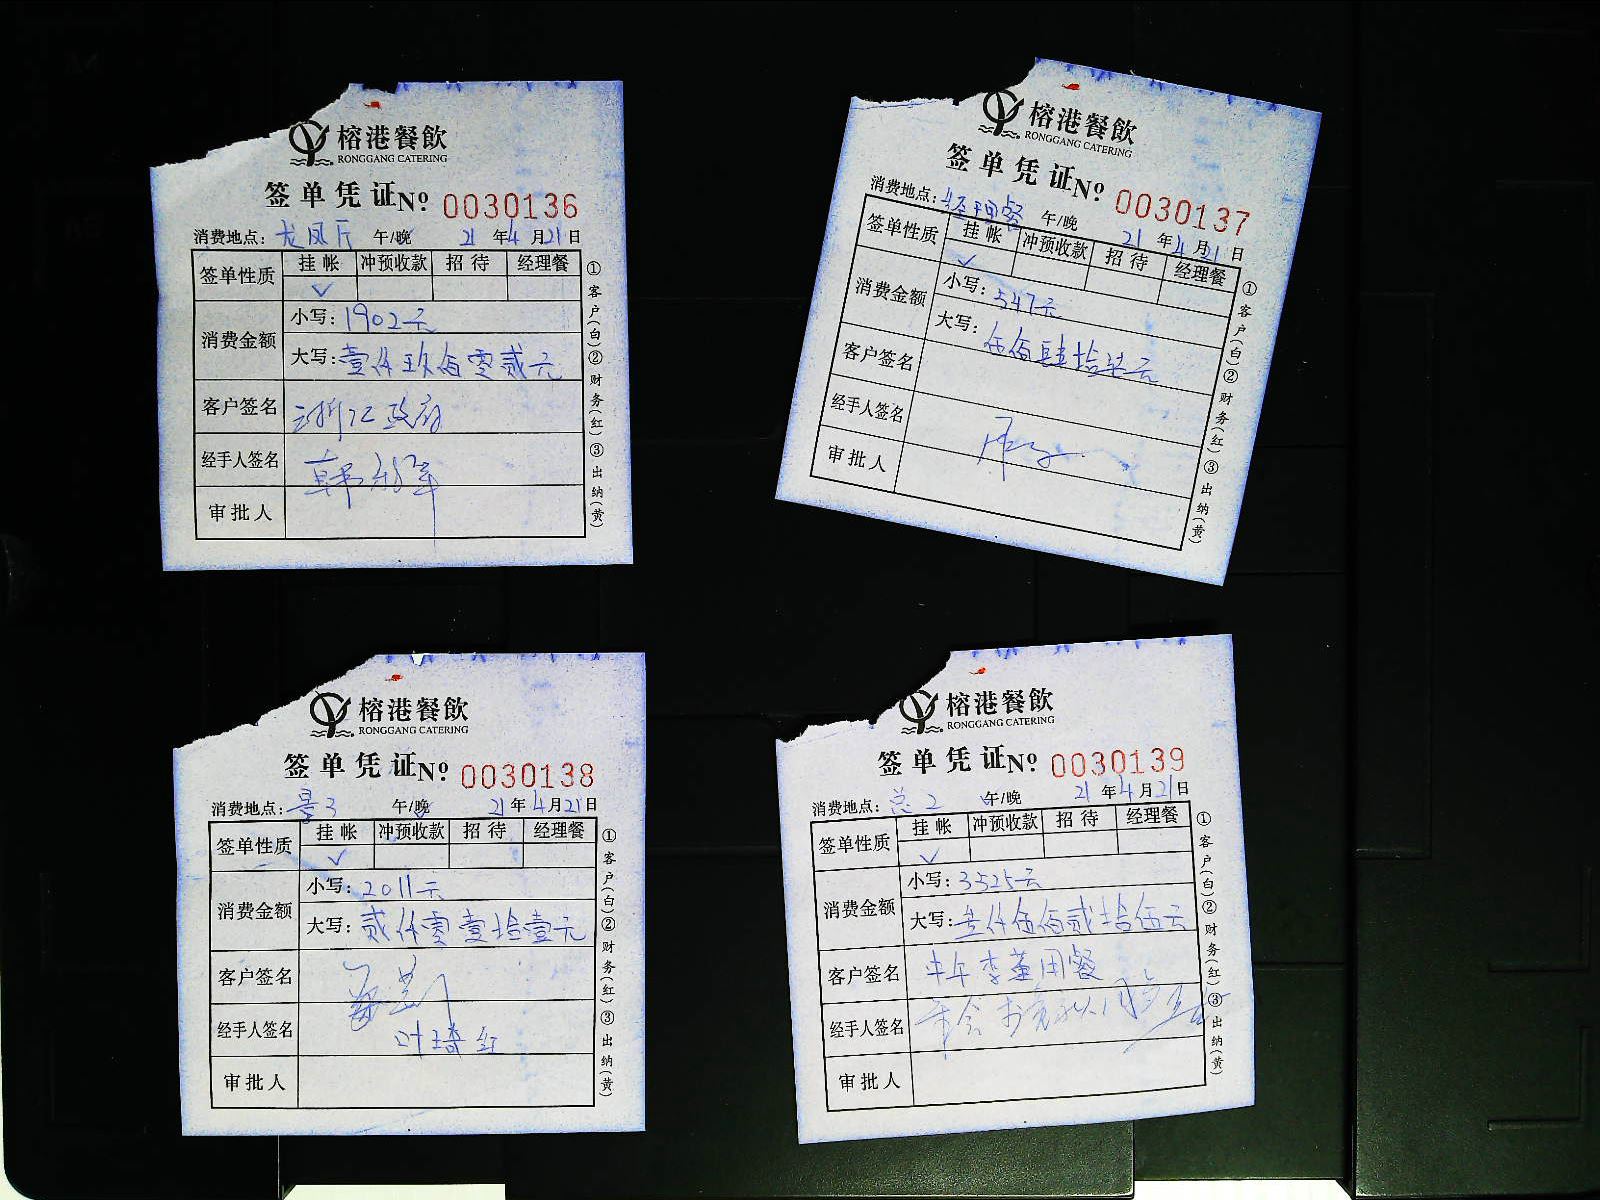 榕港餐飲
RONGGANG CATERING
签单凭证 № 0030136
消费地点：龙凤厅 午/晚 21年4月21日
签单性质 挂帐 冲预收款 招待 经理餐
✓
消费金额 小写：1902元
大写：壹仟玖佰零贰元
客户签名 浙江政府
经手人签名 韩
审批人
①客户(白)②财务(红)③出纳(黄)
榕港餐飲
RONGGANG CATERING
签单凭证 № 0030137
消费地点：经理餐 午/晚 21年4月21日
签单性质 挂帐 冲预收款 招待 经理餐
✓
消费金额 小写：547元
大写：伍佰肆拾柒元
客户签名
经手人签名
审批人
①客户(白)②财务(红)③出纳(黄)
榕港餐飲
RONGGANG CATERING
签单凭证 № 0030138
消费地点：景3 午/晚 21年4月21日
签单性质 挂帐 冲预收款 招待 经理餐
✓
消费金额 小写：2011元
大写：贰仟零壹拾壹元
客户签名
经手人签名 叶琦红
审批人
①客户(白)②财务(红)③出纳(黄)
榕港餐飲
RONGGANG CATERING
签单凭证 № 0030139
消费地点：总2 午/晚 21年4月21日
签单性质 挂帐 冲预收款 招待 经理餐
✓
消费金额 小写：3525元
大写：叁仟伍佰贰拾伍元
客户签名 中午李董用餐
经手人签名
审批人
①客户(白)②财务(红)③出纳(黄)